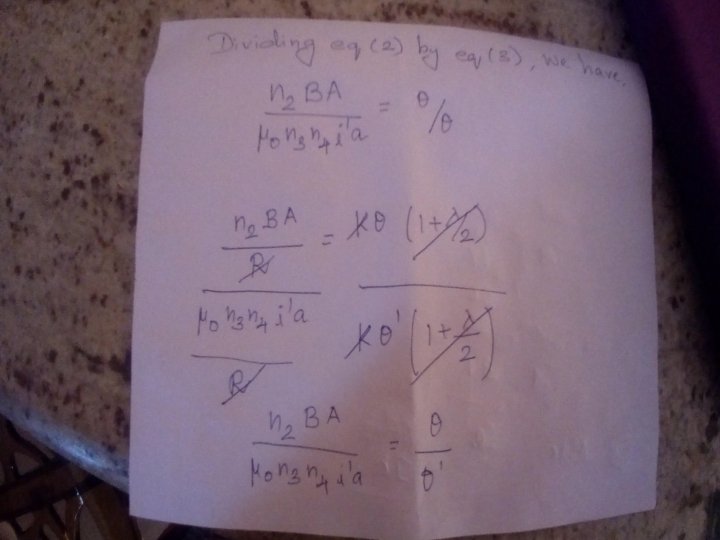 Dividing eq (2) by eq (3), we have,
n₂BA / μ₀n₃n₄i'a = θ/θ
n₂BA / R / μ₀n₃n₄i'a / R = kθ (1+λ/2) / kθ' (1+λ/2)
n₂BA / μ₀n₃n₄i'a = θ / θ'